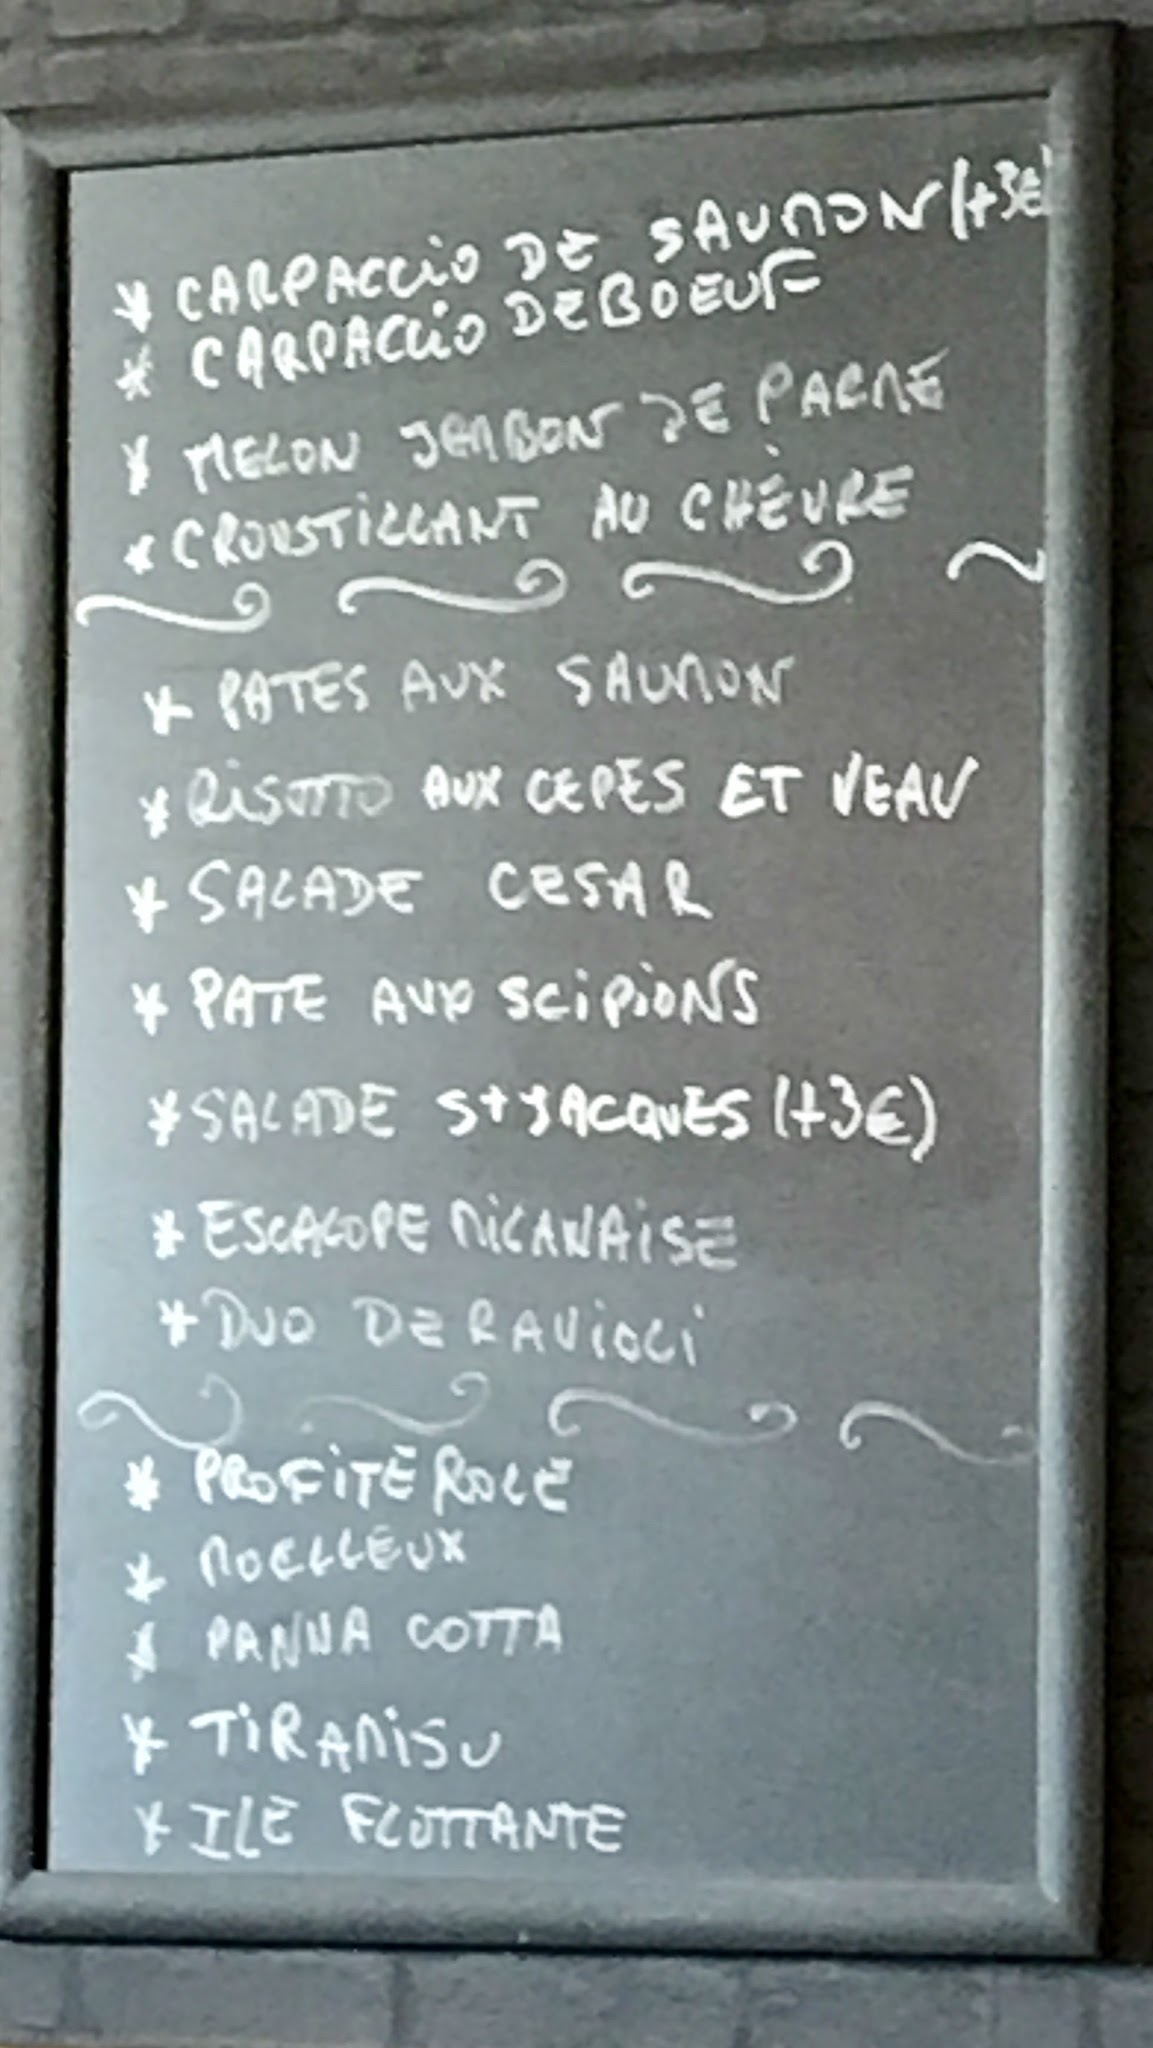 * CARPACCIO DE SAUMON (+3€)
* CARPACCIO DE BOEUF
* MELON JAMBON DE PARME
* CROUSTILLANT AU CHÈVRE
* PATES AUX SAUMON
* RISOTTO AUX CEPES ET VEAU
* SALADE CESAR
* PATE AUX SCIPIONS
* SALADE St JACQUES (+3€)
* ESCALOPE MILANAISE
* DUO DE RAVIOLI
* PROFITEROLE
* MOELLEUX
* PANNA COTTA
* TIRAMISU
* ILE FLOTTANTE